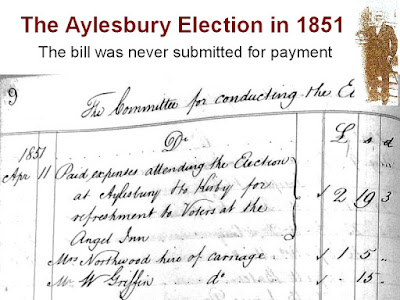 The Aylesbury Election in 1851
The bill was never submitted for payment
9
The Committee for conducting the El
Dr
£ s d
1851
Apr 11 Paid expenses attending the Election
at Aylesbury Ho Kirby for
refreshment to Voters at the
Angel Inn √ 2 19 3
Mrs Northwood hire of carriage √ 1 5 „
Mr W Griffin do √ . 15 .